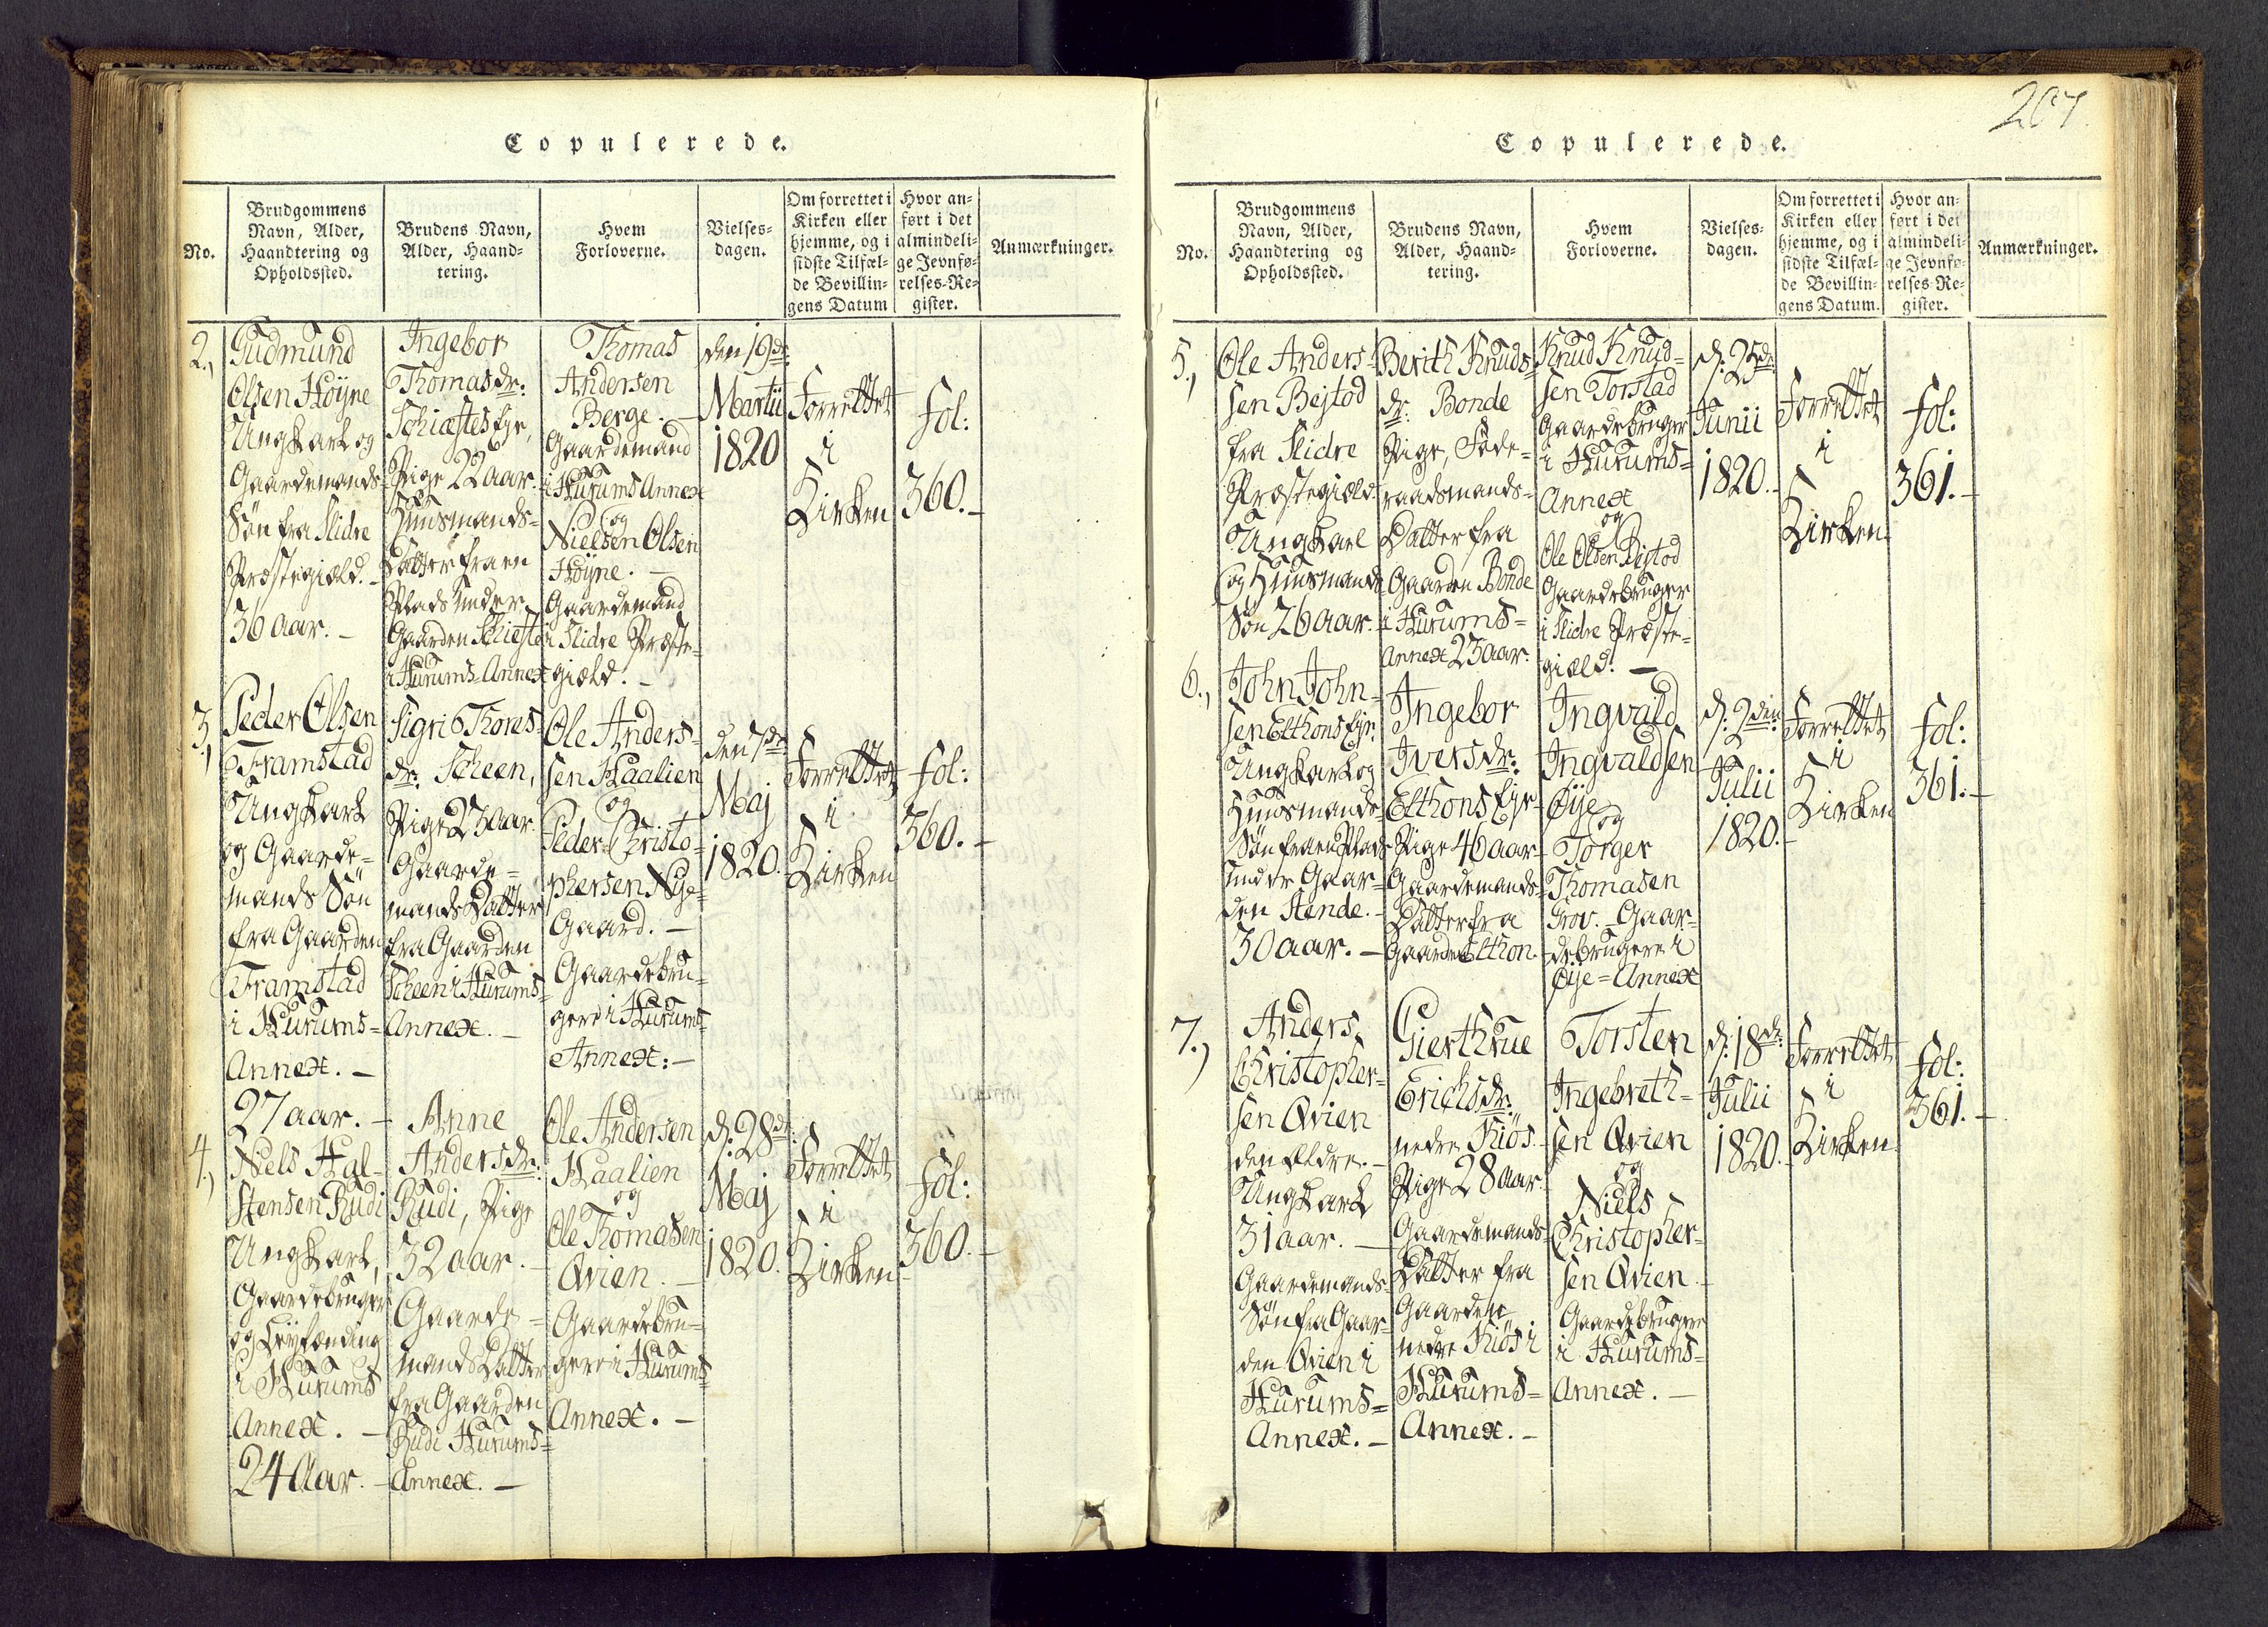 Copulerede.
No.
Brudgommens
Navn, Alder,
Haandtering og
Opholdssted.
Brudens Navn,
Alder, Haand-
tering.
Hvem
Forloverne.
Vielses-
dagen.
Om forrettet i
Kirken eller
hjemme, og i
sidste Tilfæl-
de Bevillin-
gens Datum
Hvor an-
ført i det
almindeli-
ge Jevnfø-
relses-Re-
gister.
Anmærkninger.
2.,
Gudmund
Olsen Höÿne
Ungkarl og
Gaardemands
Søn fra Slidre
Præstegiæld. -
36 aar. -
Ingebor
Thomasdr:
Schiæstes Eje,
Pige 22 aar.
Huusmands-
Datter fra en
Plads under
Gaarden Schieste
i Hurums-Annex
Thomas
Andersen
Berge. -
Gaardemand
i Hurums Annex
og
Nielsen Olsen
Höÿne. -
Gaardemand
i Slidre Præste-
giæld. -
den 19de
Martii
1820
Forrettet
i
Kirken
fol:
360. -
3.,
Peder Olsen
Framstad
Ungkarl
og Gaarde-
mands Søn
fra Gaarden
Framstad
i Hurums-
Annex. -
27 aar. -
Sigri Thores-
dr: Scheen,
Pige 23 aar.
Gaarde-
mands Datter
fra Gaarden
Scheen i Hurums-
Annex. -
Ole Anders-
sen Haalien
og
Peder Christo-
phersen Nÿe-
Gaard. -
Gaardebru-
gere i Hurums-
Annex: -
den 7de
Maj
1820.
Forrettet
i
Kirken
fol:
360. -
4.,
Niels Hal-
stensen Rudi
Ungkarl,
Gaardebruger
og
i Hurums
Annex. -
24 Aar. -
Anne
Andersdr:
Rudi, Pige
32 aar. -
Gaarde-
mands Datter
fra Gaarden
Rudi Hurums-
Annex. -
Ole Andersen
Haalien
og
Ole Thomasen
Qvien. -
Gaardebru-
gere i Hurums-
Annex. -
d: 28de
Maj
1820.
Forrettet
i
Kirken
fol:
360. -
207
Copulerede.
No.
Brudgommens
Navn, Alder,
Haandtering og
Opholdssted.
Brudens Navn,
Alder, Haand-
tering.
Hvem
Forloverne.
Vielses-
dagen.
Om forrettet i
Kirken eller
hjemme, og i
sidste Tilfæl-
de Bevillin-
gens Datum.
Hvor an-
ført i det
almindeli-
ge Jevnfø-
relses-Re-
gister.
Anmærkninger.
5.,
Ole Anders-
sen Bejtod
fra Slidre
Præstegiæld.
Ungkarl
og Huusmands
Søn 26 aar.
Berith Knuds-
dr: Bonde
Pige, Føde-
raadsmands-
Datter fra
Gaarden Bonde
i Hurums-
Annex 23 aar.
Knud Knud-
sen Torstad
Gaardebruger
i Hurums-
Annex
og
Ole Olsen Bejtod
Gaardebruger
i Slidre Præste-
giæld. -
d: 25de
Junii
1820. -
Forrettet
i
Kirken.
fol:
361. -
6.,
John John-
sen Elthons Eje.
Ungkarl og
Huusmands-
Søn fra en Plads
under Gaar-
den Stende. -
30 aar. -
Ingebor
Iversdr:
Elthons Eje-
Pige 46 aar-
Gaardemands-
Datter fra
Gaarden Elthon.
Ingvald
Ingvaldsen
Øije
og
Torger
Thomasen
Grov. - Gaar-
debrugere i
Øije-Annex
d: 2den
Julii
1820. -
Forrettet
i
Kirken
fol:
361. -
7.,
Anders
Christopher-
sen Qvien
den Ældre. -
Ungkarl
31 aar. -
Gaardemands-
Søn fra Gaar-
den Qvien i
Hurums-
Annex. -
Gierthrue
Erichsdr:
nedre Kiös-
Pige 28 aar.
Gaardemands-
Datter fra
Gaarden
nedre Kiös i
Hurums-
Annex. -
Torsten
Ingebreth-
sen Qvien
og
Niels
Christopher-
sen Qvien.
Gaardebrugere
i Hurums-
Annex. -
d: 18de
Julii
1820. -
Forrettet
i
Kirken.
fol:
361. -